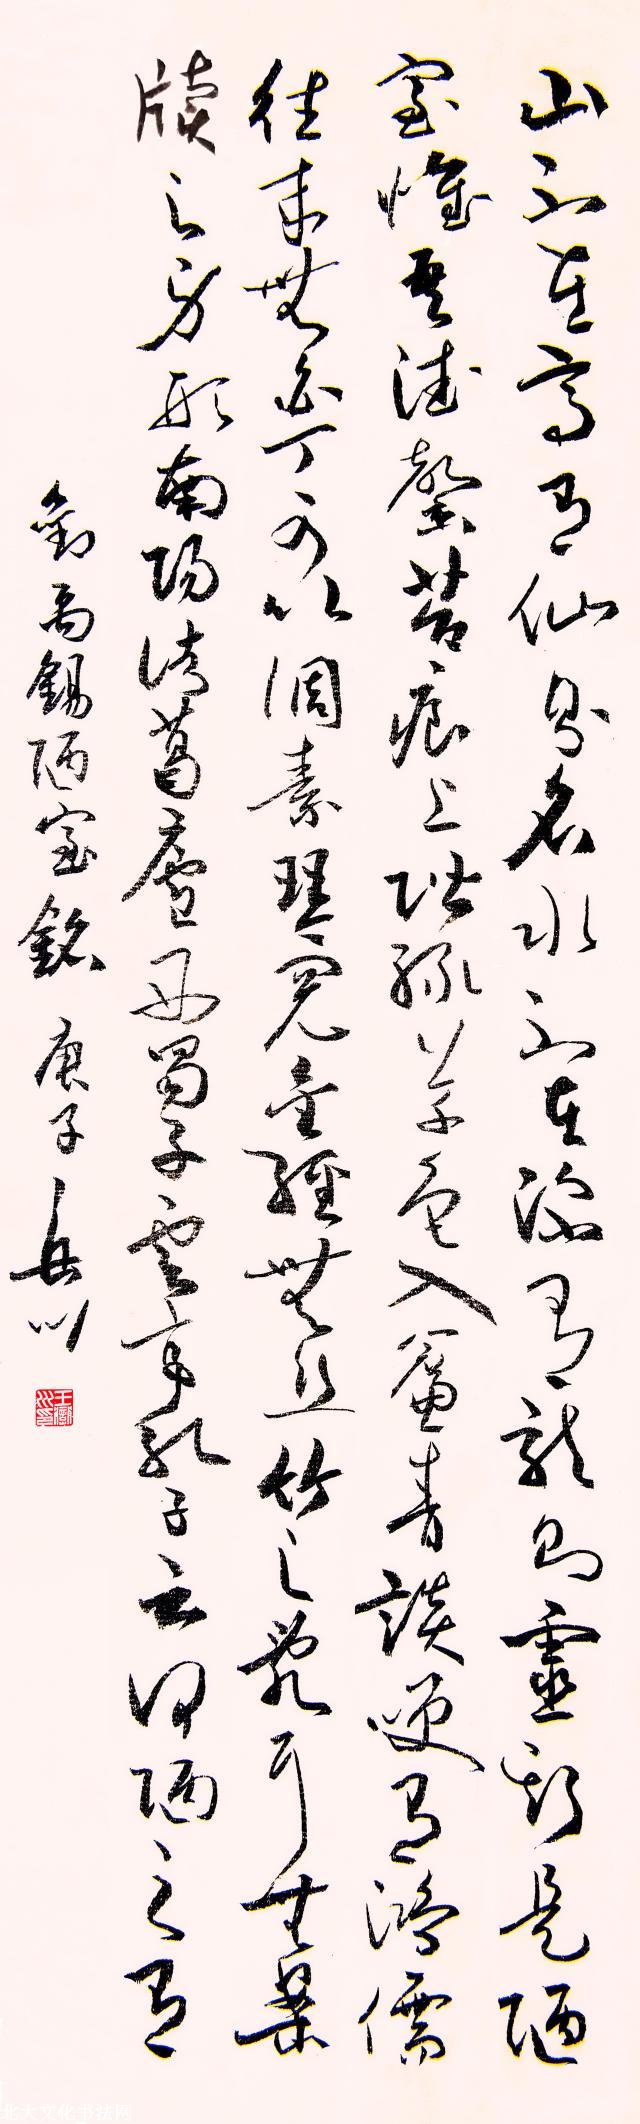 山不在高有仙則名水不在深有龍則靈斯是陋
室惟吾德馨苔痕上階綠草色入簾青談笑有鴻儒
往來無白丁可以調素琴閱金經無絲竹之亂耳無案
牘之勞形南陽諸葛廬西蜀子雲亭孔子云何陋之有
劉禹錫陋室銘 庚子 岳川
北大文化书法网